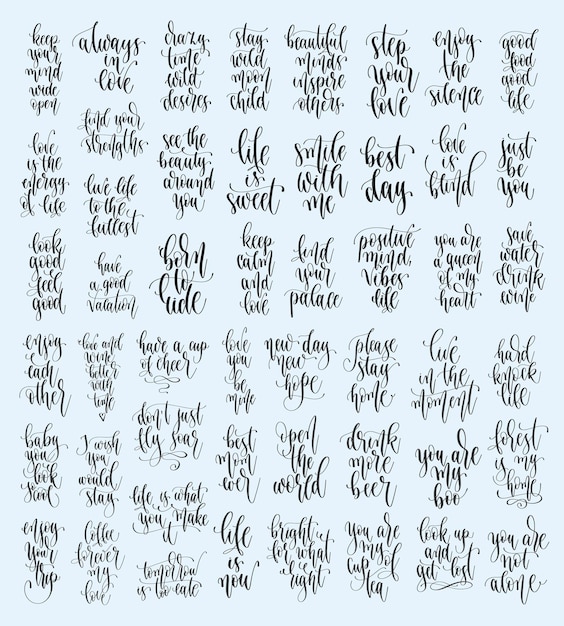 keep
your
mind
wide
open
always
in
love
crazy
time
wild
desires
stay
wild
moon
child
beautiful
minds
inspire
others
step
your
love
enjoy
the
silence
good
food
good
life
love
is the
energy
of life
find your
strengths
live life
to the
fullest
see the
beauty
around
you
life
is
sweet
smile
with
me
best
day
love
is
blind
just
be
you
look
good
feel
good
have
a good
vacation
born
to
ride
keep
calm
and
love
find
your
palace
positive
mind,
vibes
life
you are
a queen
of my
heart
save
water
drink
wine
enjoy
each
other
love and
wine
better
with
time
have a cup
of cheer
love
you
be
mine
new day
new
hope
please
stay
home
live
in the
moment
hard
knock
life
baby
you
look
so cool
I wish
you
would
stay
don't just
fly soar
life is what
you make
it
best
mom
ever
open
the
world
drink
more
beer
you are
my
boo
forest
is my
home
enjoy
your
trip
coffee
forever
my
love
tomorrow
is too late
life
is
now
bright
for what
right
you are
my
cup of
tea
look up
and
get lost
you are
not
alone